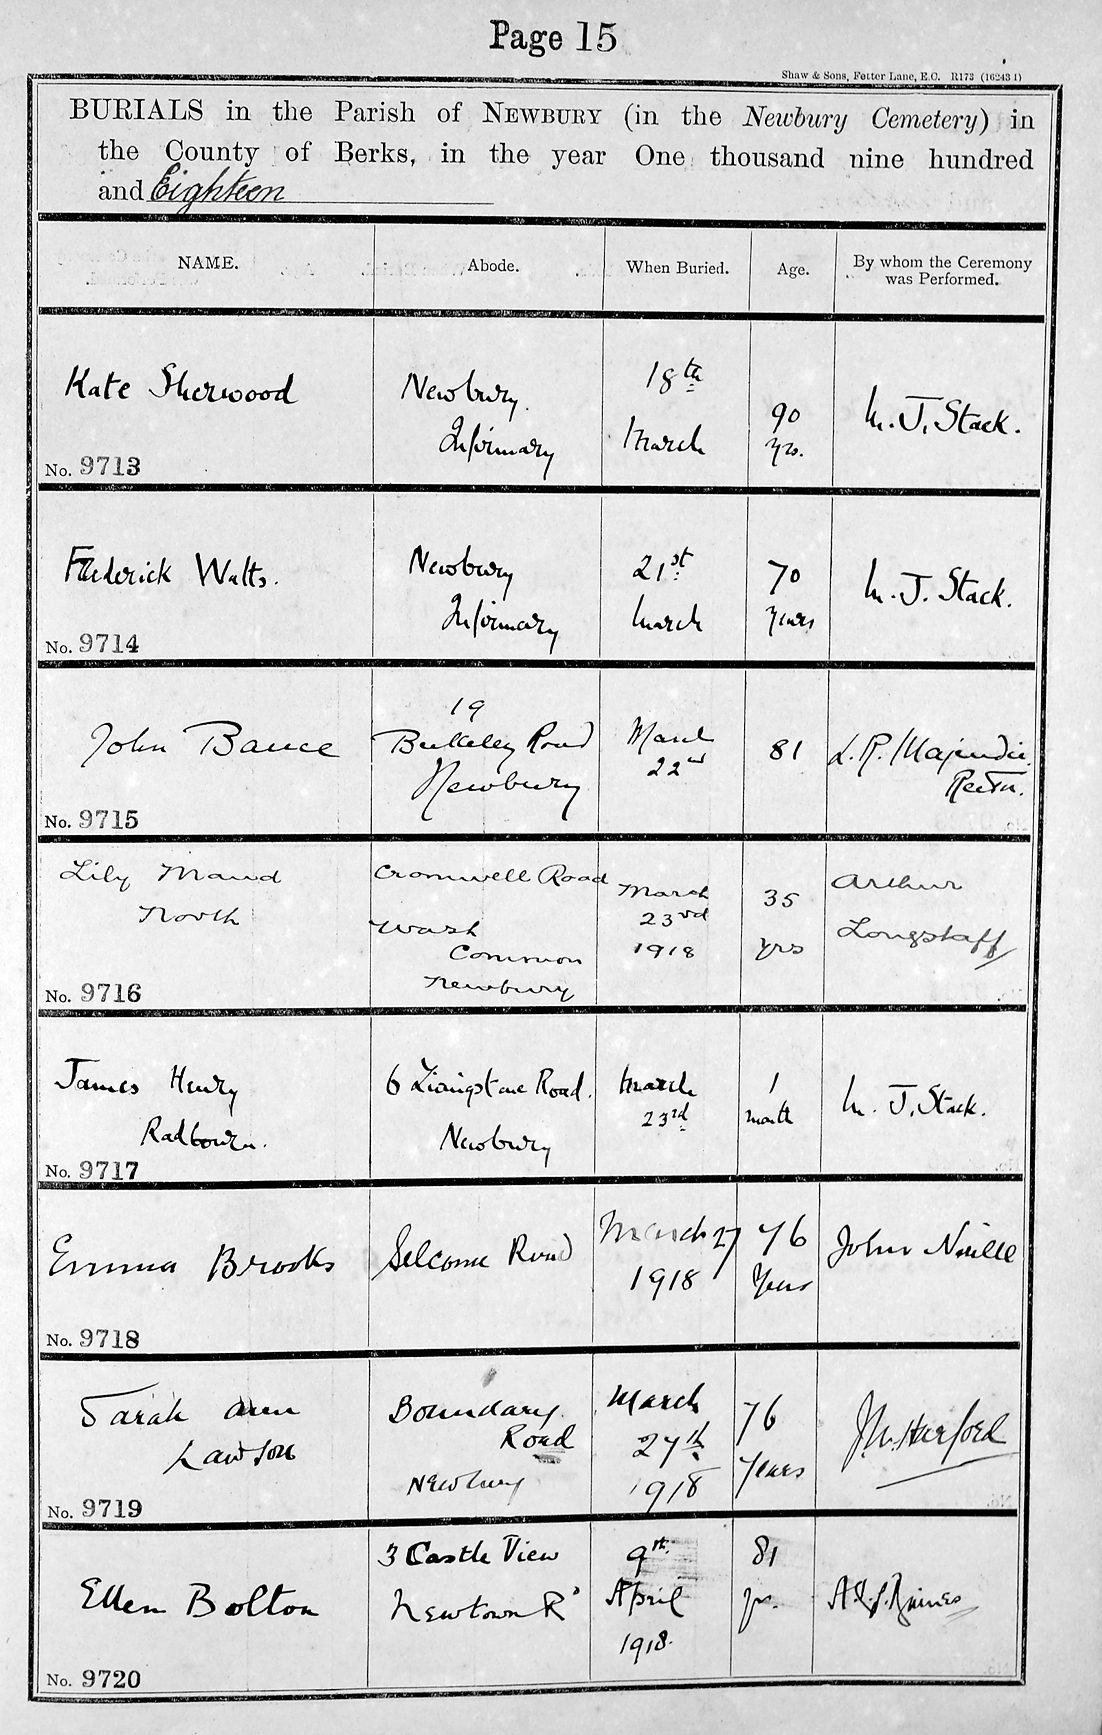 Page 15
Shaw & Sons, Fetter Lane, E.C. R173 (16243 1)
BURIALS in the Parish of NEWBURY (in the Newbury Cemetery) in
the County of Berks, in the year One thousand nine hundred
and Eighteen
NAME.
Abode.
When Buried.
Age.
By whom the Ceremony
was Performed.
Kate Sherwood
No. 9713
Newbury
Infirmary
18th
March
90
yrs.
M. J. Stack.
Frederick Watts.
No. 9714
Newbury
Infirmary
21st
March
70
years
M. J. Stack.
John Bance
No. 9715
19
Berkeley Road
Newbury
March
22nd
81
L. R. Majendie
Rector.
Lily Maud
North
No. 9716
Cromwell Road
Wash
Common
Newbury
March
23rd
1918
35
yrs
Arthur
Longstaff
James Henry
Radbourn.
No. 9717
6 Livingstone Road.
Newbury
March
23rd
1
month
M. J. Stack.
Emma Brooks
No. 9718
Selborne Road
March 27
1918
76
Years
John Neville
Sarah Ann
Lawson
No. 9719
Boundary
Road
Newbury
March
27th
1918
76
Years
Harford
Ellen Bolton
No. 9720
3 Castle View
Newtown Rd
9th
April
1918.
81
yrs.